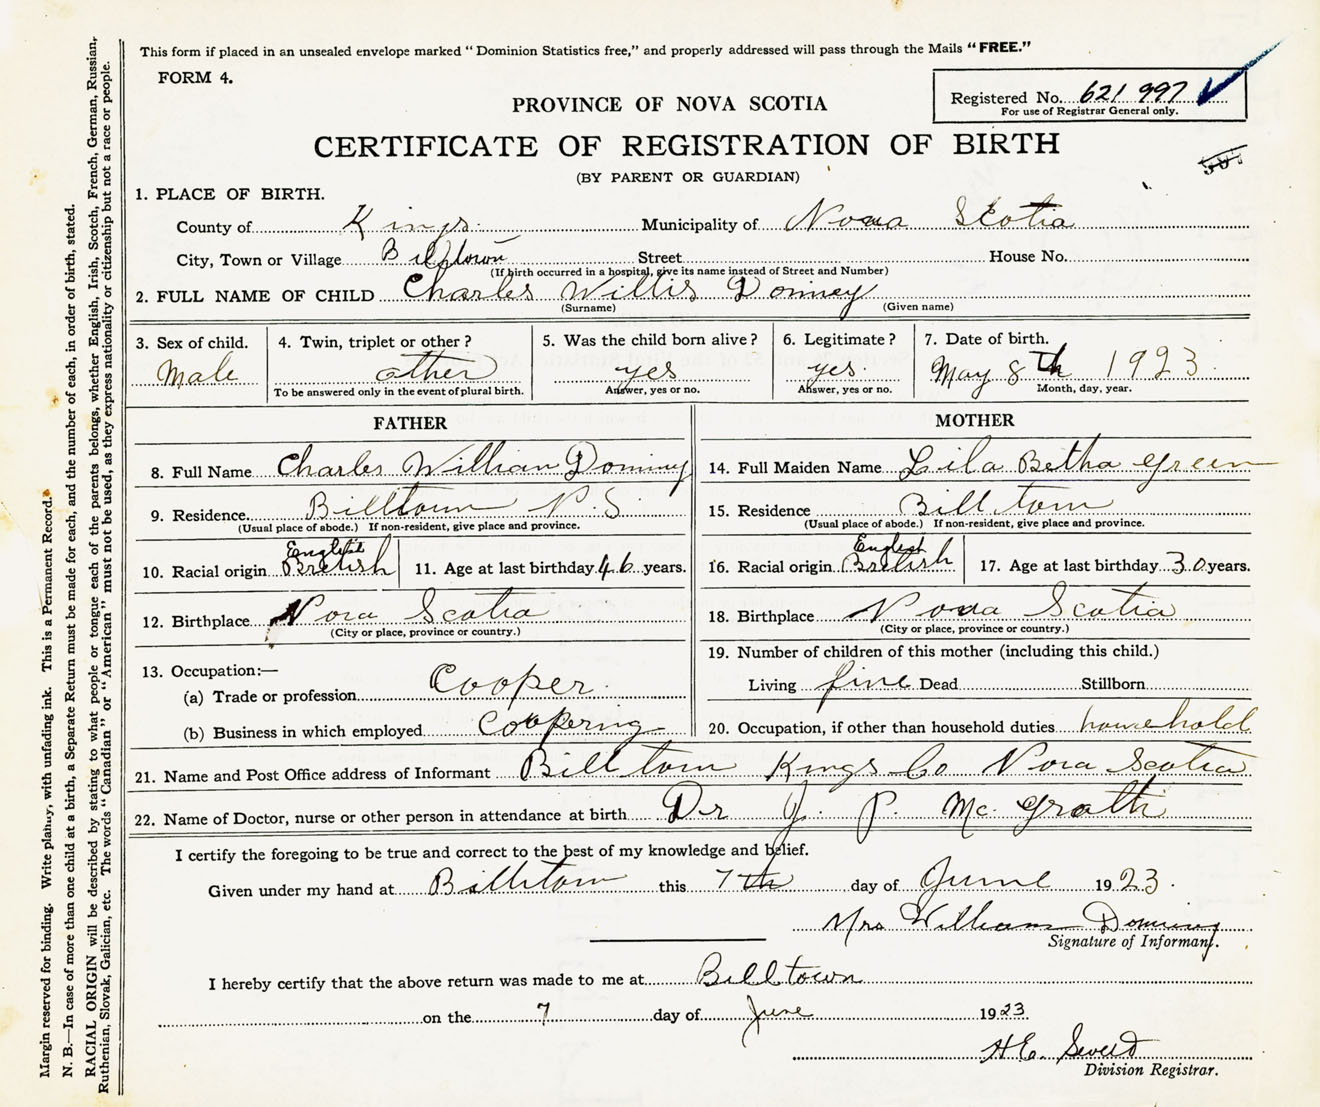 This form if placed in an unsealed envelope marked "Dominion Statistics free," and properly addressed will pass through the Mails "FREE."
FORM 4.
Registered No. 621 997
For use of Registrar General only.
PROVINCE OF NOVA SCOTIA
CERTIFICATE OF REGISTRATION OF BIRTH
(BY PARENT OR GUARDIAN)
1. PLACE OF BIRTH.
County of Kings Municipality of Nova Scotia
City, Town or Village Billtown Street House No.
(If birth occurred in a hospital, give its name instead of Street and Number)
2. FULL NAME OF CHILD Charles Willis Dominey
(Surname) (Given name)
3. Sex of child. 4. Twin, triplet or other? 5. Was the child born alive? 6. Legitimate? 7. Date of birth.
Male other yes yes. May 8th 1923.
To be answered only in the event of plural birth. Answer, yes or no. Answer, yes or no. Month, day, year.
FATHER MOTHER
8. Full Name Charles William Dominy 14. Full Maiden Name Lila Betha Green
9. Residence Billtown N.S. 15. Residence Billtown
(Usual place of abode.) If non-resident, give place and province. (Usual place of abode.) If non-resident, give place and province.
English English
10. Racial origin British 11. Age at last birthday 46 years. 16. Racial origin British 17. Age at last birthday 30 years.
12. Birthplace Nova Scotia 18. Birthplace Nova Scotia
(City or place, province or country.) (City or place, province or country.)
13. Occupation:— 19. Number of children of this mother (including this child.)
(a) Trade or profession Cooper. Living five Dead Stillborn
(b) Business in which employed Coopering 20. Occupation, if other than household duties household
21. Name and Post Office address of Informant Billtown Kings Co Nova Scotia
22. Name of Doctor, nurse or other person in attendance at birth Dr J. P. Mc Grath
I certify the foregoing to be true and correct to the best of my knowledge and belief.
Given under my hand at Billtown this 7th day of June 1923.
Mrs William Dominy
Signature of Informant.
I hereby certify that the above return was made to me at Billtown
on the 7 day of June 1923.
H.E.
Division Registrar.
Margin reserved for binding. Write plainly, with unfading ink. This is a Permanent Record.
N. B.—In case of more than one child at a birth, a Separate Return must be made for each, and the number of each, in order of birth, stated.
RACIAL ORIGIN will be described by stating to what people or tongue each of the parents belongs, whether English, Irish, Scotch, French, German, Russian,
Ruthenian, Slovak, Galician, etc. The words "Canadian" or "American" must not be used, as they express nationality or citizenship but not a race or people.